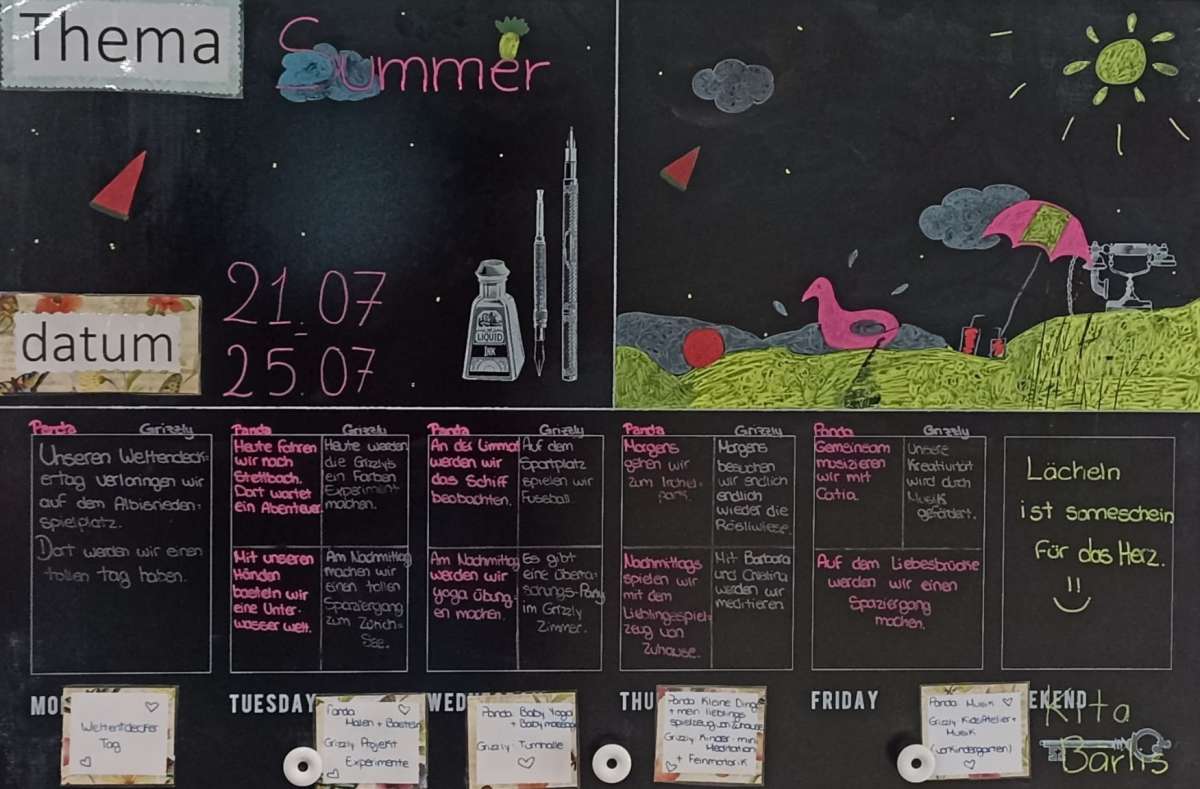 Thema
Summer
datum
21.07
25.07
LIQUID
INK
Panda
Grizzly
Unseren Weltendeck-
ertag verbringen wir
auf dem Albisrieden-
spielplatz.
Dort werden wir einen
tollen Tag haben.
Panda
Heute fahren
wir nach
Stettbach.
Dort wartet
ein Abenteuer
Mit unseren
Händen
basteln wir
eine Unter-
wasser welt.
Grizzly
Heute werden
die Grizzly's
ein Farben
Experiment
machen.
Am Nachmittag
machen wir
einen tollen
Spaziergang
zum Zürich-
See.
Panda
An der Limmat
werden wir
das Schiff
beobachten.
Am Nachmittag
werden wir
yoga Übung-
en machen.
Grizzly
Auf dem
Sportplatz
spielen wir
Fussball.
Es gibt
eine Überra-
schungs-Party
im Grizzly
Zimmer.
Panda
Morgens
gehen wir
zum Irchel-
park.
Nachmittags
spielen wir
mit dem
Lieblingsspiel-
zeug von
Zuhause.
Grizzly
Morgens
besuchen
wir endlich
endlich
wieder die
Röslíwiese.
Mit Barbara
und Christina
werden wir
meditieren
Panda
Gemeinsam
musizieren
wir mit
Catia.
Grizzly
Unsere
Kreativität
wird durch
Musik
gefördert.
Auf dem Liebesbrücke
werden wir einen
Spaziergang
machen.
Lächeln
ist sonneschein
für das Herz.
!!
MO
TUESDAY
WED
THU
FRIDAY
EKEND
Weltentdecker
Tag
Panda
Malen + Basteln
Grizzly Projekt
Experimente
Panda Baby Yoga
+ Baby massage
Grizzly: Turnhalle
Panda Kleine Dinge
+ mein lieblings
spielzeug von zuhause
Grizzly Kinder- mini
Meditation
+ Feinmotorik
Panda Musik
Grizzly KidsAtelier +
Musik
(vorkindergarten)
Kita
Barlis